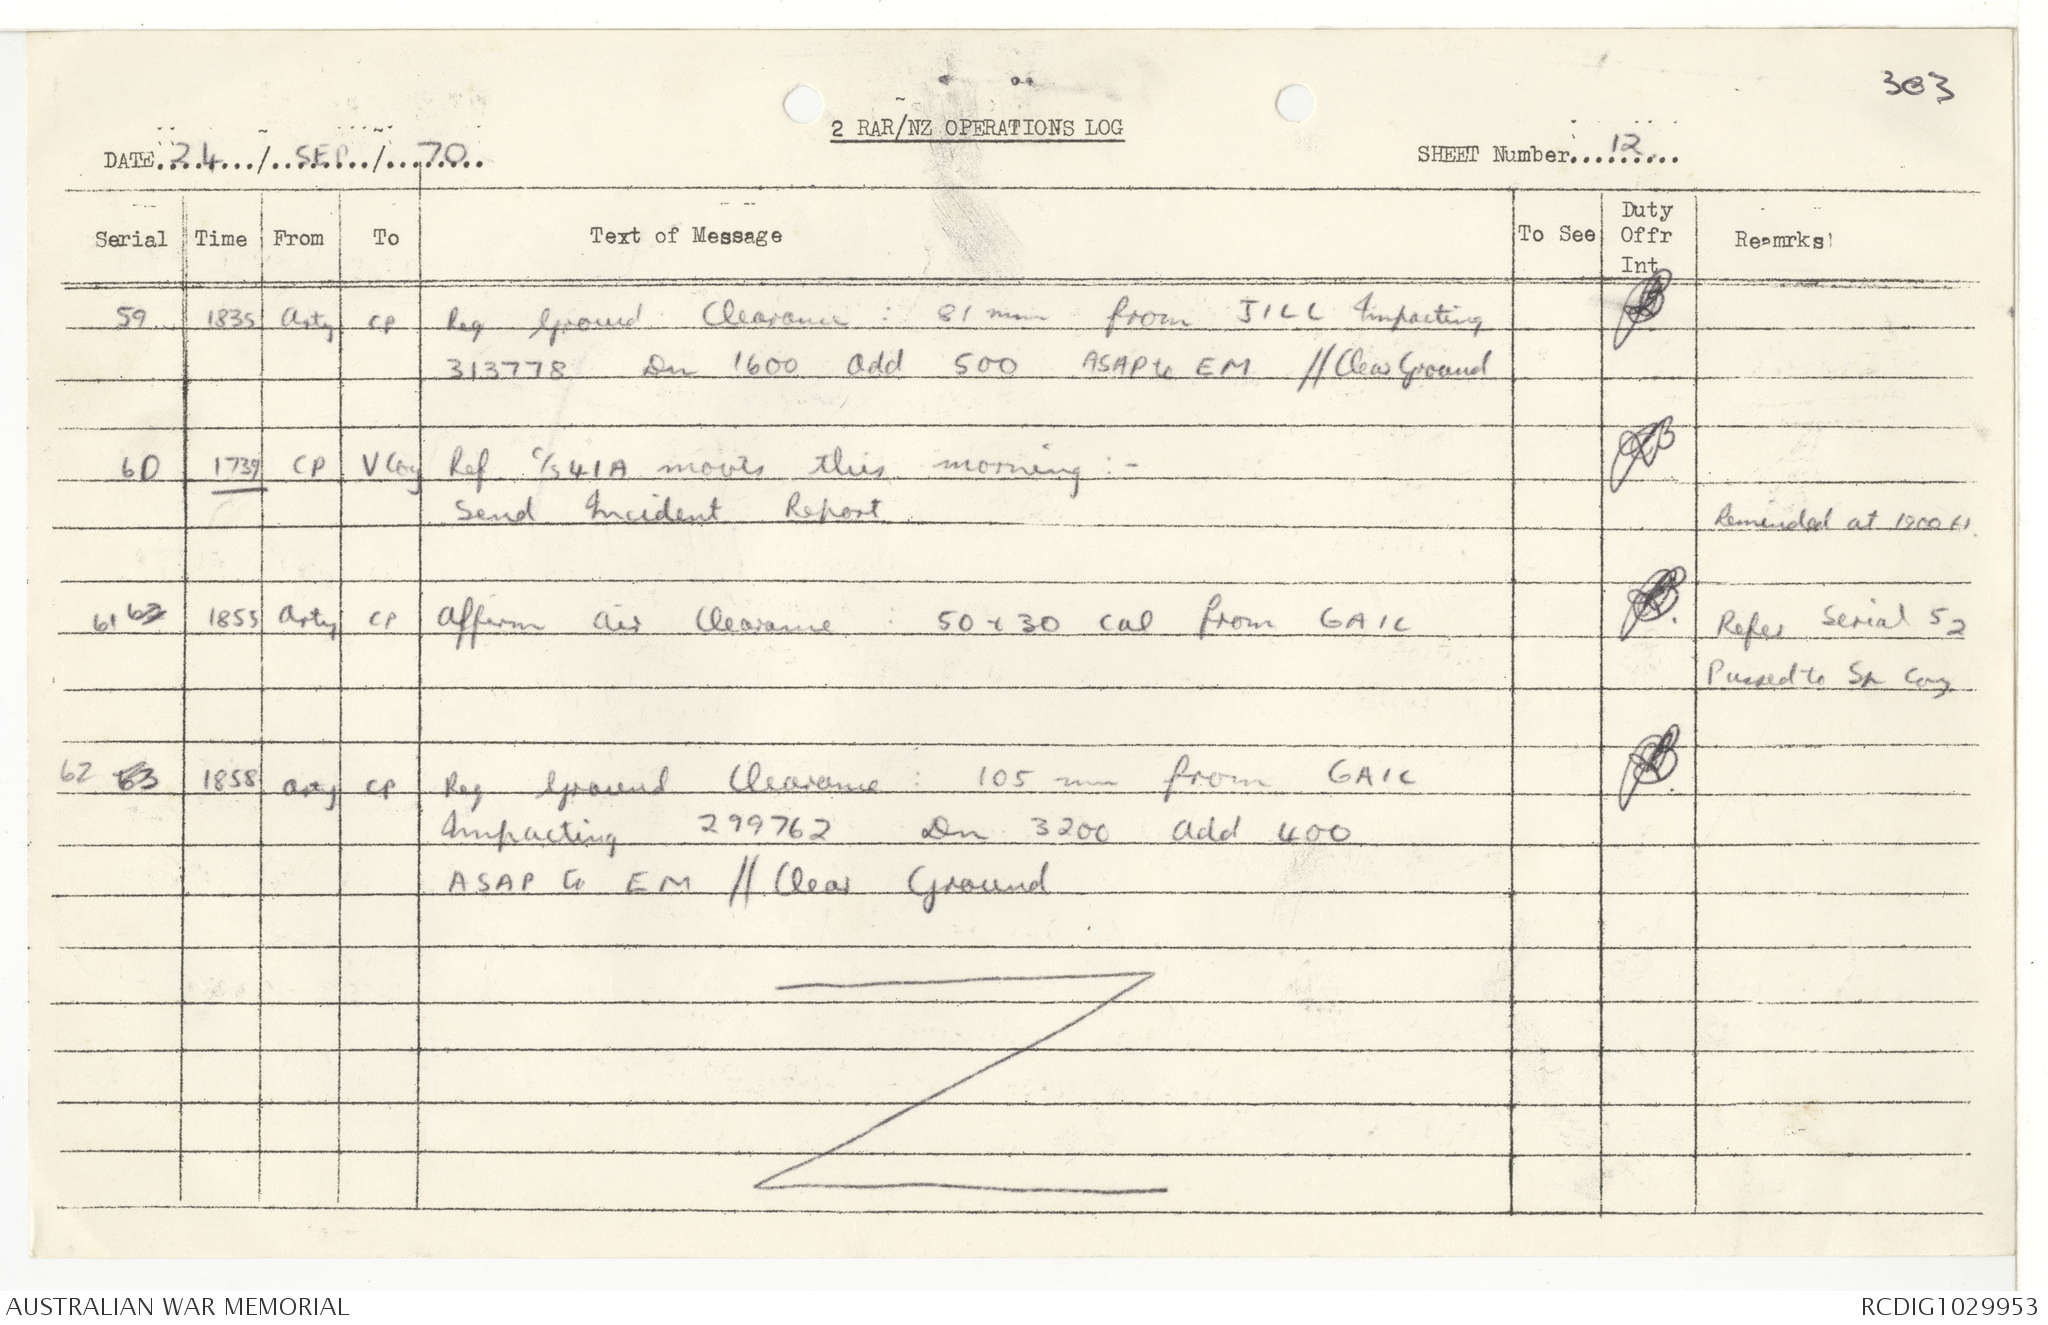 303
2 RAR/NZ OPERATIONS LOG
DATE..24.../..SEP../...70...
SHEET Number....12.....
Serial Time From To Text of Message To See Duty Offr Int Reamrks
59 1835 Arty CP Req Ground Clearance : 81 mm from JILL Impacting
313778 Dn 1600 add 500 ASAP to EM // Clear Ground
60 1739 CP V Coy Ref C/S 41A movts this morning :-
Send Incident Report Reminded at 1900 H
61 1855 Arty CP Affirm Air Clearance : 50 + 30 cal from GAIL Refer Serial 52
Passed to Sp Coy
62 63 1858 Arty CP Req Ground Clearance : 105 mm from GAIL
Impacting 299762 Dn 3200 add 400
ASAP to EM // Clear Ground
AUSTRALIAN WAR MEMORIAL
RCDIG1029953